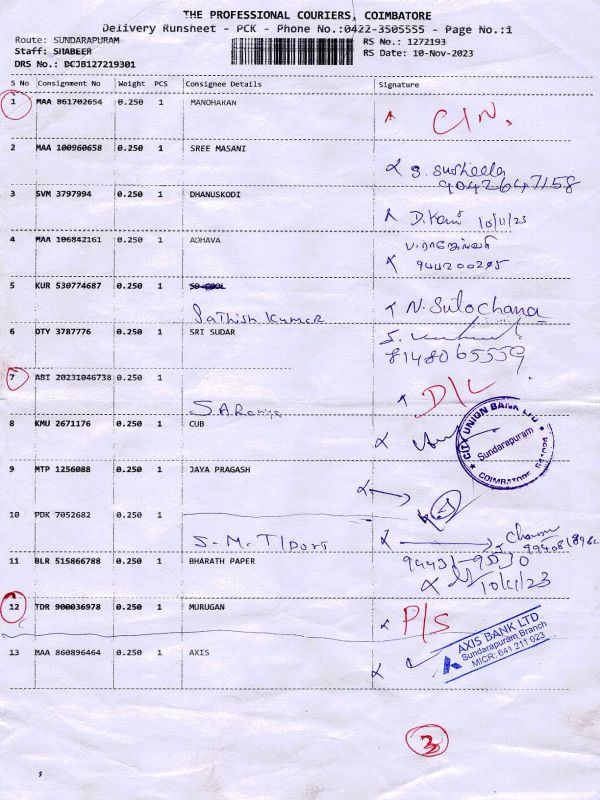 THE PROFESSIONAL COURIERS, COIMBATORE
Delivery Runsheet - PCK - Phone No.:0422-3505555 - Page No.:1
Route: SUNDARAPURAM
RS No.: 1272193
Staff: SHABEER
RS Date: 10-Nov-2023
DRS No.: DCJB127219301
S No Consignment No Weight PCS Consignee Details Signature
1 MAA 861702654 0.250 1 MANOHARAN
C/N.
2 MAA 100960658 0.250 1 SREE MASANI
S. Susheela
9042647158
3 SVM 3797994 0.250 1 DHANUSKODI
D. 10/11/23
4 MAA 106842161 0.250 1 ADHAVA
944200295
5 KUR 530774687 0.250 1 SO COOL
Sathish Kumar
N. Sulochana
6 OTY 3787776 0.250 1 SRI SUDAR
8148065559
7 ABI 20231046738 0.250 1
D/L
S.A.
8 KMU 2671176 0.250 1 CUB
CITY UNION BANK LTD
Sundarapuram
COIMBATORE 641024
9 MTP 1256088 0.250 1 JAYA PRAGASH
10 PDK 7052682 0.250 1
S.M.T/port
11 BLR 515866788 0.250 1 BHARATH PAPER
94431-95530
10/11/23
12 TDR 900036978 0.250 1 MURUGAN
P/S
13 MAA 860896464 0.250 1 AXIS
AXIS BANK LTD
Sundarapuram Branch
MICR: 641 211 023
3